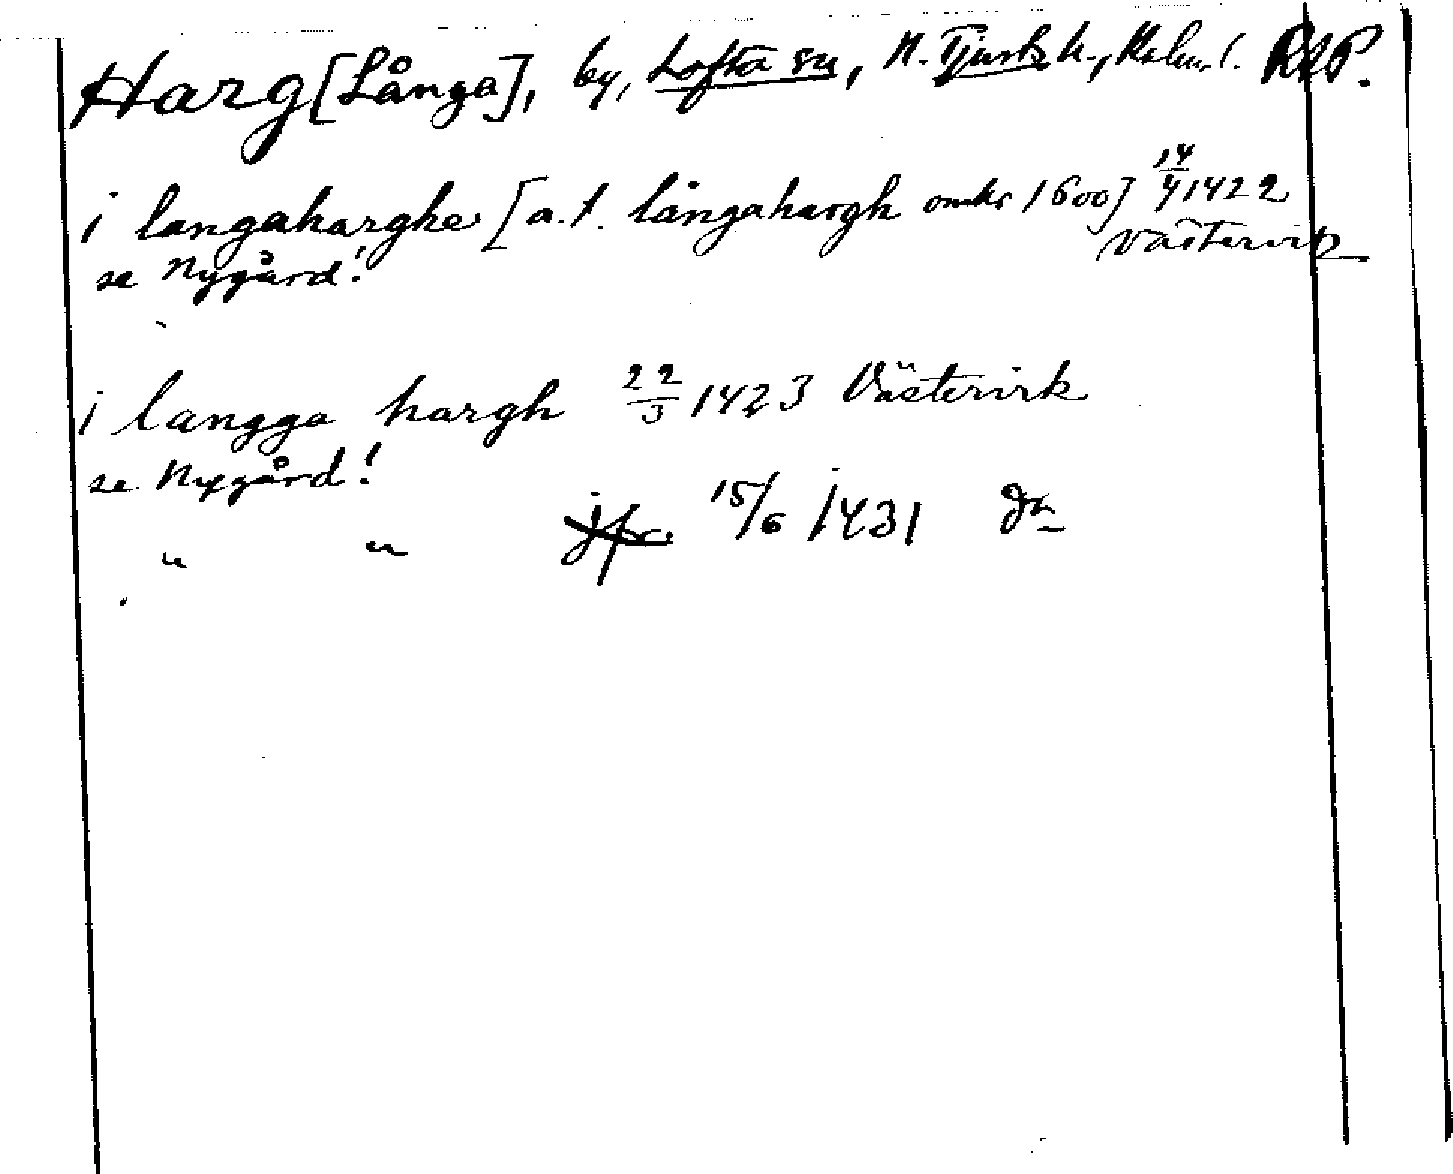 Harg [Långa], by, Lofta sn, N. Tjusts h., Kalm. l. RAP.
i langaharghe [a.t. långahargh omkr 1600] 14/4 1422
Västervik
se Nygård!
i langga hargh 22/3 1423 Västervik
se Nygård!
" " jfr 15/6 1431 Do